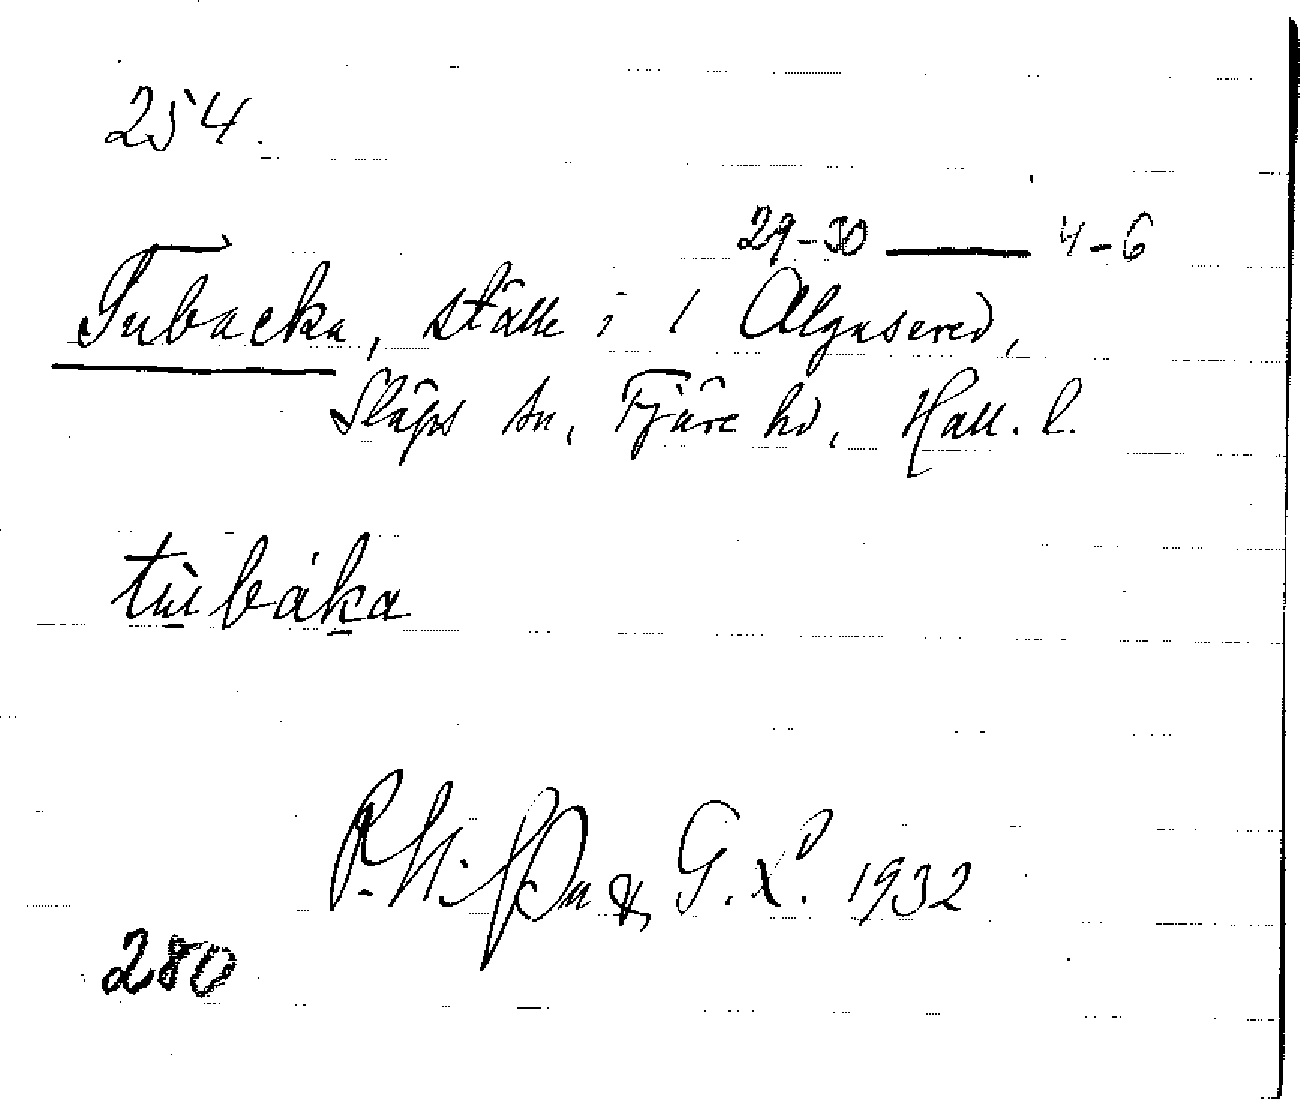 254.
29-30 — 4-6
Tubacka, ställe i 1 Algusered,
Släps sn, Fjäre hd, Hall. l.
tu̱̇̀báḵa
& G. L. 1932
280